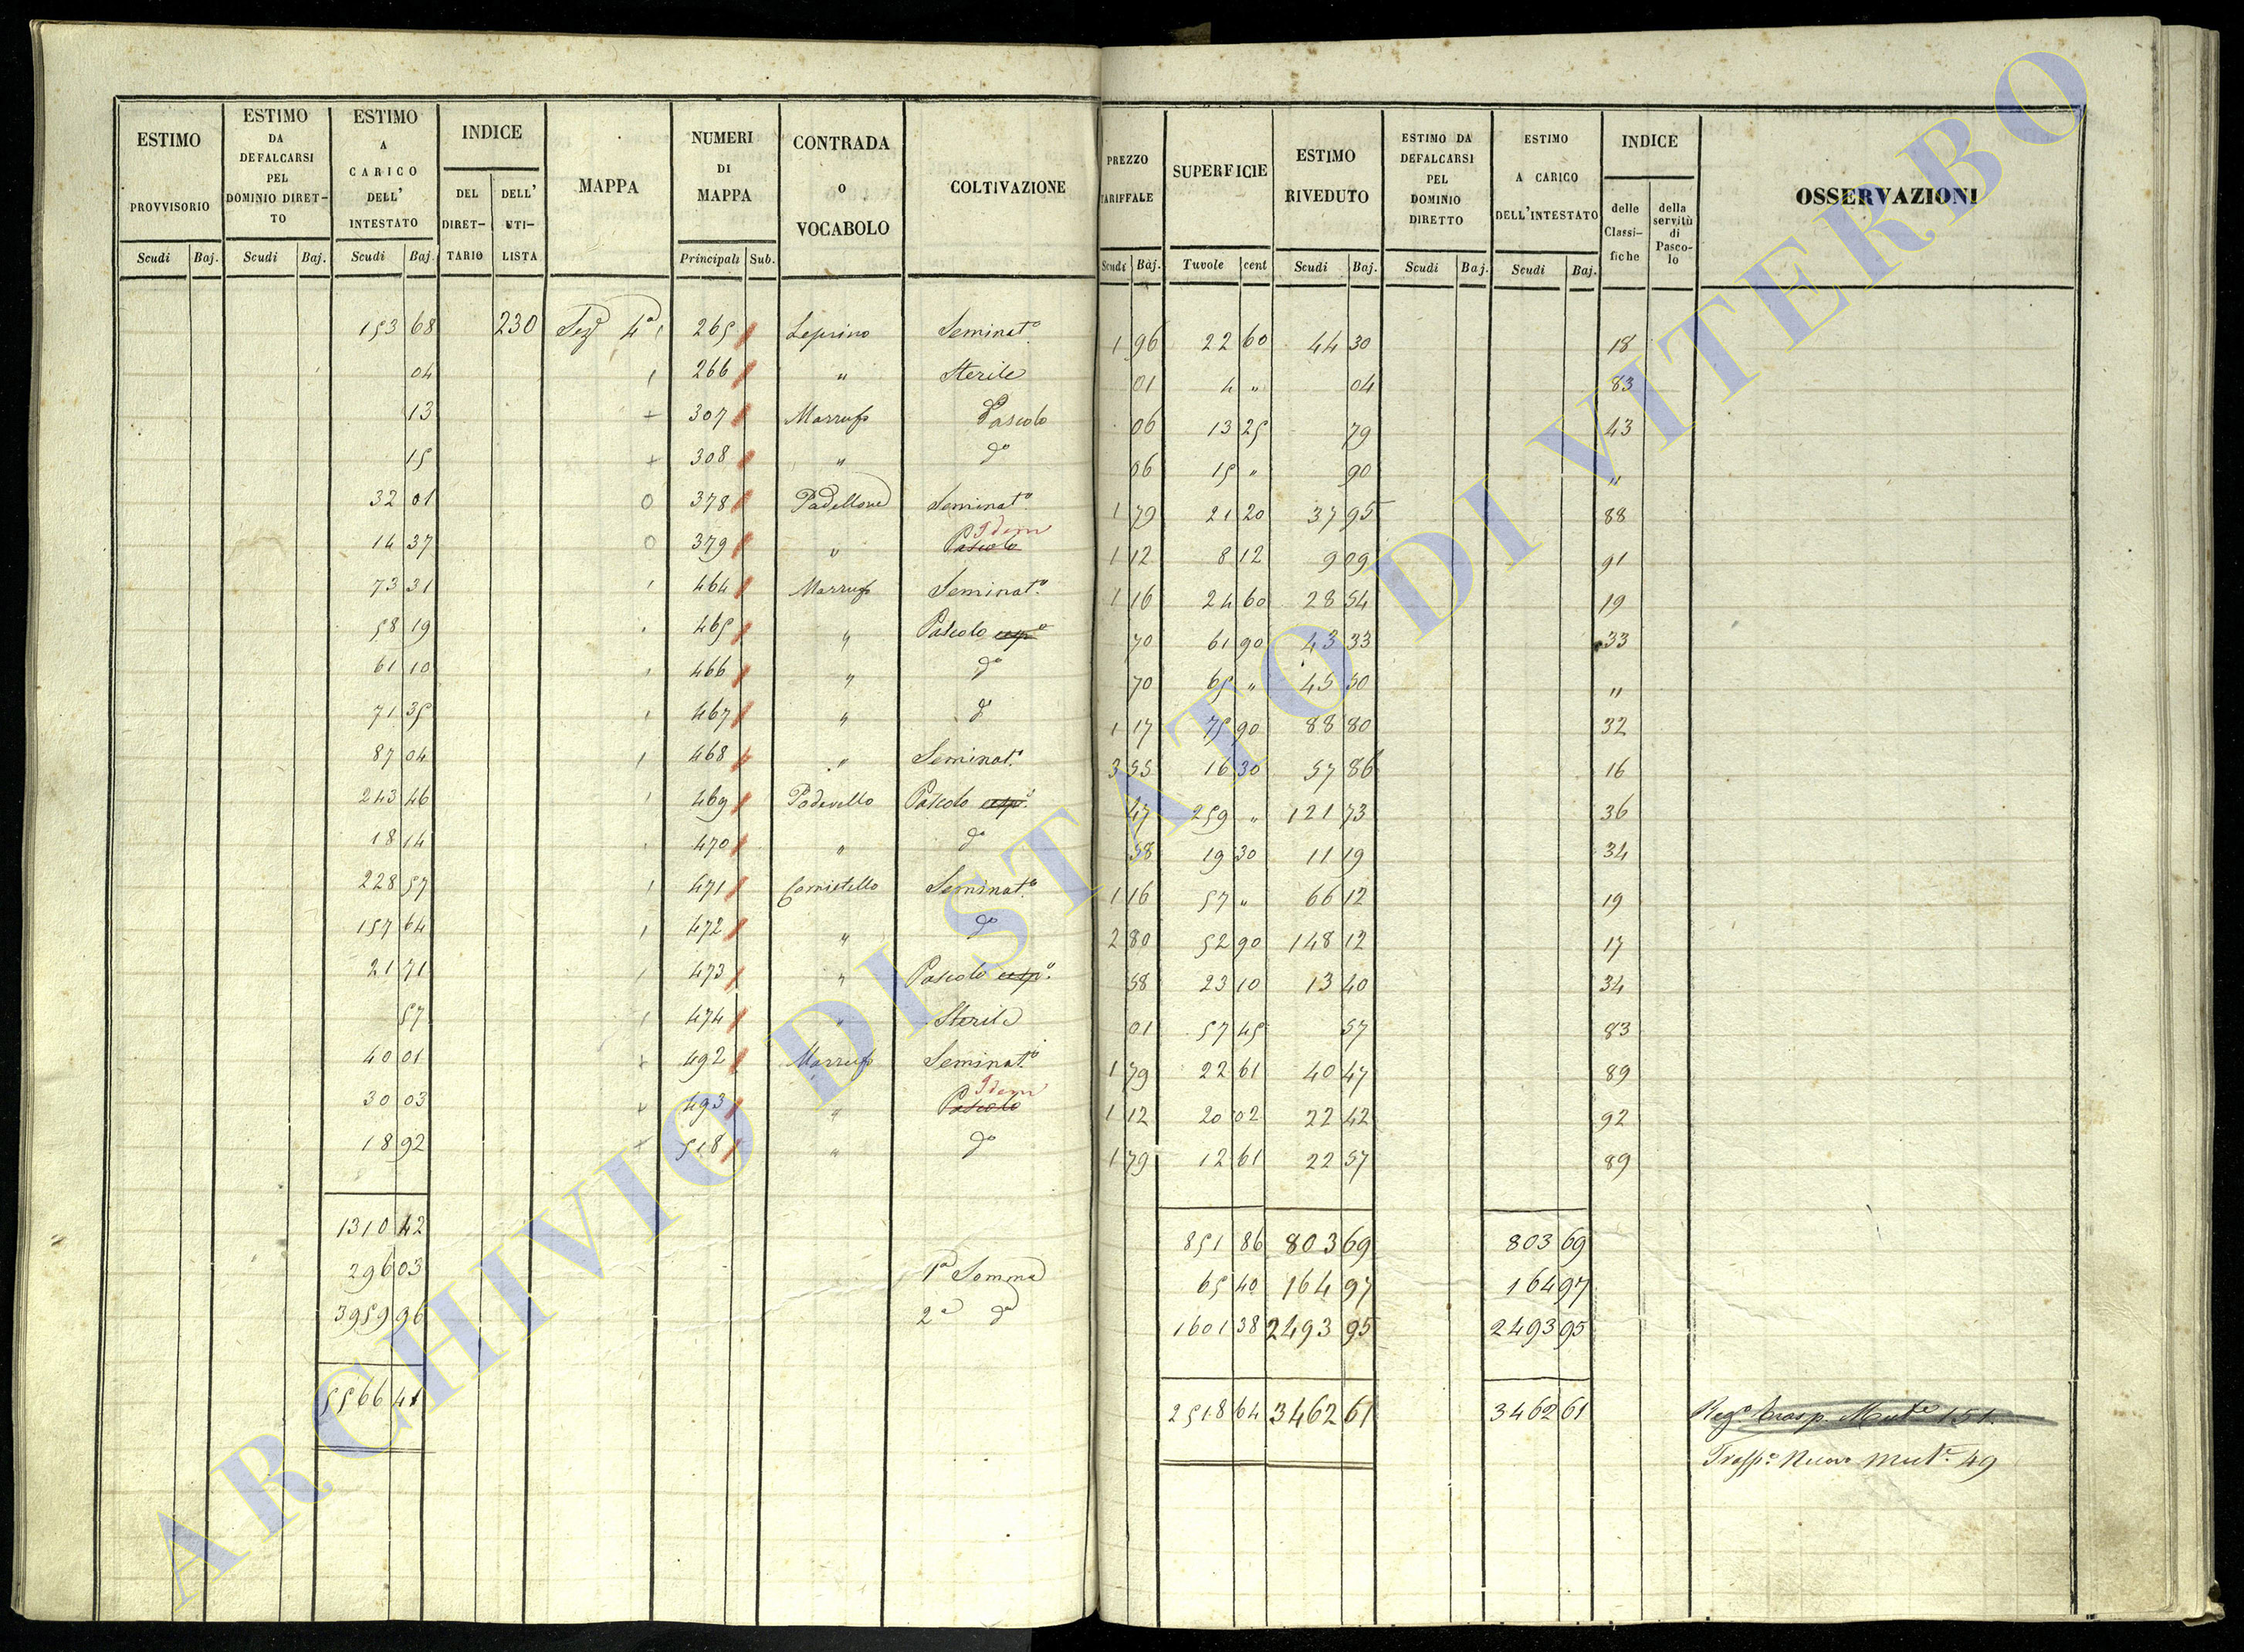 ESTIMO PROVVISORIO | ESTIMO DA DEFALCARSI PEL DOMINIO DIRET-TO | ESTIMO A CARICO DELL' INTESTATO | INDICE DEL DIRET-TARIO | DELL' UTI-LISTA | MAPPA | NUMERI DI MAPPA | CONTRADA O VOCABOLO | COLTIVAZIONE | PREZZO TARIFFALE | SUPERFICIE | ESTIMO RIVEDUTO | ESTIMO DA DEFALCARSI PEL DOMINIO DIRETTO | ESTIMO A CARICO DELL'INTESTATO | INDICE delle Classi-fiche | della servitù di Pasco-lo | OSSERVAZIONI
Scudi | Baj. | Scudi | Baj. | Scudi | Baj. | Principali | Sub. | Scudi | Baj. | Tavole | cent | Scudi | Baj. | Scudi | Baj. | Scudi | Baj.
153 68 | 230 | Seze 4a | 265 | Leprino | Seminato | 1 96 | 22 60 | 44 30 | 18
04 | 266 | " | Sterile | 01 | 4 " | 04 | 83
13 | + 307 | Marrufo | Pascolo | 06 | 13 25 | 79 | 43
15 | + 308 | " | do | 06 | 15 " | 90 | "
32 01 | 0 | 378 | Padellone | Seminato | 1 79 | 21 20 | 37 95 | 88
14 37 | 0 | 379 | " | Pascolo Idem | 1 12 | 8 12 | 9 09 | 91
73 31 | 464 | Marrufo | Seminato | 1 16 | 24 60 | 28 54 | 19
58 19 | 465 | " | Pascolo cespo | 70 | 61 90 | 43 33 | 33
61 10 | 466 | " | do | 70 | 65 " | 45 50 | "
71 35 | 467 | " | do | 1 17 | 75 90 | 88 80 | 32
87 04 | 468 | " | Seminato | 3 55 | 16 30 | 57 86 | 16
243 46 | 469 | Poderello | Pascolo cespo | 47 | 259 " | 121 73 | 36
18 14 | 470 | " | do | 58 | 19 30 | 11 19 | 34
228 57 | 471 | Cornietello | Seminato | 1 16 | 57 " | 66 12 | 19
157 64 | 472 | " | do | 2 80 | 52 90 | 148 12 | 17
21 71 | 473 | " | Pascolo cespo | 58 | 23 10 | 13 40 | 34
57 | 474 | " | Sterile | 01 | 57 45 | 57 | 83
40 01 | + 492 | Marrufo | Seminato | 1 79 | 22 61 | 40 47 | 89
30 03 | + 493 | " | Pascolo Idem | 1 12 | 20 02 | 22 42 | 92
18 92 | + 518 | " | do | 1 79 | 12 61 | 22 57 | 89
1310 42 | 851 86 | 803 69 | 803 69
296 03 | 1a Somma | 65 40 | 164 97 | 164 97
3959 96 | 2a do | 1601 38 | 2493 95 | 2493 95
5566 41 | 2518 64 | 3462 61 | 3462 61
Rego trasp. Mute 151
Trasspo Nuovo Mute 49
ARCHIVIO DI STATO DI VITERBO